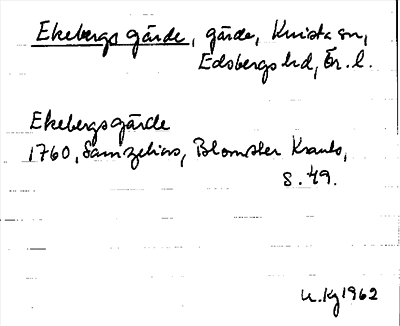 Ekebergs gärde, gärde, Knista sn,
Edsbergs hd, Ör. l.
Ekebergsgärde
1760, Samzelius, Blomster Krants,
S. 49.
U. Kj 1962